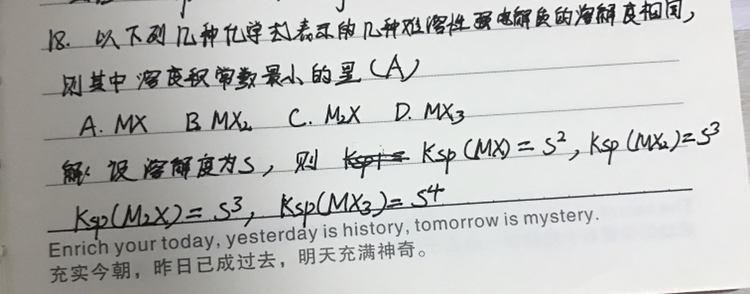 18. 以下列几种化学式表示的几种难溶性强电解质的溶解度相同,
则其中溶度积常数最小的是(A)
A. MX B. MX₂ C. M₂X D. MX₃
解: 设溶解度为S, 则 Ksp(MX) = S², Ksp(MX₂) = S³
Ksp(M₂X) = S³, Ksp(MX₃) = S⁴
Enrich your today, yesterday is history, tomorrow is mystery.
充实今朝，昨日已成过去，明天充满神奇。